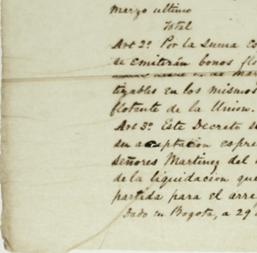 marzo ultimo
Total
Art 2º Por la suma es
se emitirán bonos flo
de mar
tizables en los mismos
flotante de la Union.
Art 3º Este Decreto se
su aceptacion espres
señores Martinez del
de la liquidacion que
partida para el arre
Dado en Bogota, a 29